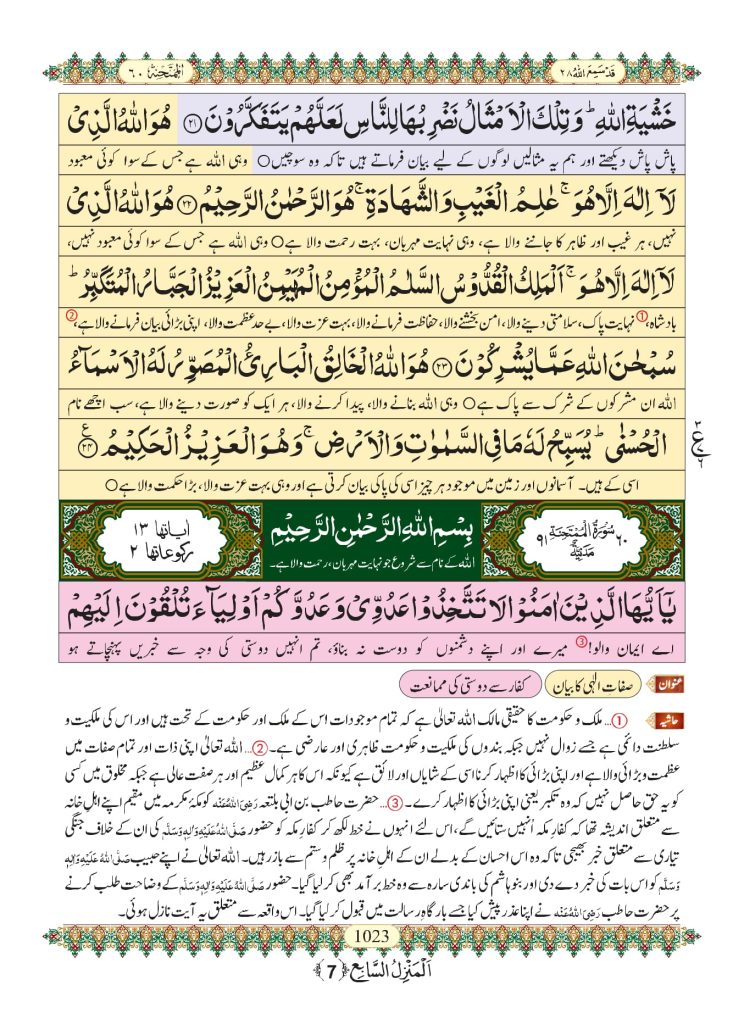 قَدْ سَمِعَ اللهُ ۲۸
اَلْمُمْتَحِنَة ۶۰
خَشْیَةِ اللهِ ؕ وَ تِلْكَ الْاَمْثَالُ نَضْرِبُهَا لِلنَّاسِ لَعَلَّهُمْ یَتَفَكَّرُوْنَ ﴿۲۱﴾ هُوَ اللهُ الَّذِیْ
پاش پاش دیکھتے اور ہم یہ مثالیں لوگوں کے لیے بیان فرماتے ہیں تاکہ وہ سوچیں○ وہی اللہ ہے جس کے سوا کوئی معبود
لَاۤ اِلٰهَ اِلَّا هُوَ ۚ عٰلِمُ الْغَیْبِ وَ الشَّهَادَةِ ۚ هُوَ الرَّحْمٰنُ الرَّحِیْمُ ﴿۲۲﴾ هُوَ اللهُ الَّذِیْ
نہیں، ہر غیب اور ظاہر کا جاننے والا ہے، وہی نہایت مہربان، بہت رحمت والا ہے○ وہی اللہ ہے جس کے سوا کوئی معبود نہیں،
لَاۤ اِلٰهَ اِلَّا هُوَ ۚ اَلْمَلِكُ الْقُدُّوْسُ السَّلٰمُ الْمُؤْمِنُ الْمُهَیْمِنُ الْعَزِیْزُ الْجَبَّارُ الْمُتَكَبِّرُ ؕ
بادشاہ،① نہایت پاک، سلامتی دینے والا، امن بخشنے والا، حفاظت فرمانے والا، بہت عزت والا، بے حد عظمت والا، اپنی بڑائی بیان فرمانے والا ہے،②
سُبْحٰنَ اللهِ عَمَّا یُشْرِكُوْنَ ﴿۲۳﴾ هُوَ اللهُ الْخَالِقُ الْبَارِئُ الْمُصَوِّرُ لَهُ الْاَسْمَآءُ
اللہ ان مشرکوں کے شرک سے پاک ہے○ وہی اللہ بنانے والا، پیدا کرنے والا، ہر ایک کو صورت دینے والا ہے، سب اچھے نام
الْحُسْنٰی ؕ یُسَبِّحُ لَهٗ مَا فِی السَّمٰوٰتِ وَ الْاَرْضِ ۚ وَ هُوَ الْعَزِیْزُ الْحَكِیْمُ ﴿۲۴﴾ ع
اسی کے ہیں۔ آسمانوں اور زمین میں موجود ہر چیز اسی کی پاکی بیان کرتی ہے اور وہی بہت عزت والا، بڑا حکمت والا ہے○
۶۰ سُوْرَةُ الْمُمْتَحِنَةِ مَدَنِیَّةٌ ۹۱
بِسْمِ اللهِ الرَّحْمٰنِ الرَّحِیْمِ
اللہ کے نام سے شروع جو نہایت مہربان، رحمت والا ہے۔
اٰیاتها ۱۳
رکوعاتها ۲
یٰۤاَیُّهَا الَّذِیْنَ اٰمَنُوْا لَا تَتَّخِذُوْا عَدُوِّیْ وَ عَدُوَّكُمْ اَوْلِیَآءَ تُلْقُوْنَ اِلَیْهِمْ
اے ایمان والو!③ میرے اور اپنے دشمنوں کو دوست نہ بناؤ، تم انہیں دوستی کی وجہ سے خبریں پہنچاتے ہو
عنوان صفات الٰہی کا بیان کفار سے دوستی کی ممانعت
حاشیہ ①... ملک و حکومت کا حقیقی مالک اللہ تعالٰی ہے کہ تمام موجودات اس کے ملک اور حکومت کے تحت ہیں اور اس کی ملکیت و
سلطنت دائمی ہے جسے زوال نہیں جبکہ بندوں کی ملکیت و حکومت ظاہری اور عارضی ہے۔ ②... اللہ تعالٰی اپنی ذات اور تمام صفات میں
عظمت و بڑائی والا ہے اور اپنی بڑائی کا اظہار کرنا اسی کے شایاں اور لائق ہے کیونکہ اس کا ہر کمال عظیم اور ہر صفت عالی ہے جبکہ مخلوق میں کسی
کو یہ حق حاصل نہیں کہ وہ تکبر یعنی اپنی بڑائی کا اظہار کرے۔ ③... حضرت حاطب بن ابی بلتعہ رَضِیَ اللهُ عَنْهُ کو مکۂ مکرمہ میں مقیم اپنے اہل خانہ
سے متعلق اندیشہ تھا کہ کفار مکہ اُنہیں ستائیں گے، اس لئے انہوں نے خط لکھ کر کفارِ مکہ کو حضور صَلَّی اللهُ عَلَیْهِ وَاٰلِهٖ وَسَلَّم کی ان کے خلاف جنگی
تیاری سے متعلق خبر بھیجی تاکہ وہ اس احسان کے بدلے ان کے اہل خانہ پر ظلم و ستم سے باز رہیں۔ اللہ تعالٰی نے اپنے حبیب صَلَّی اللهُ عَلَیْهِ وَاٰلِهٖ
وَسَلَّم کو اس بات کی خبر دے دی اور بنو ہاشم کی باندی سارہ سے وہ خط برآمد بھی کر لیا گیا۔ حضور صَلَّی اللهُ عَلَیْهِ وَاٰلِهٖ وَسَلَّم کے وضاحت طلب کرنے
پر حضرت حاطب رَضِیَ اللهُ عَنْهُ نے اپنا عذر پیش کیا جسے بارگاہِ رسالت میں قبول کر لیا گیا۔ اس واقعہ سے متعلق یہ آیت نازل ہوئی۔
1023
اَلْمَنْزِلُ السَّابِع ﴿7﴾